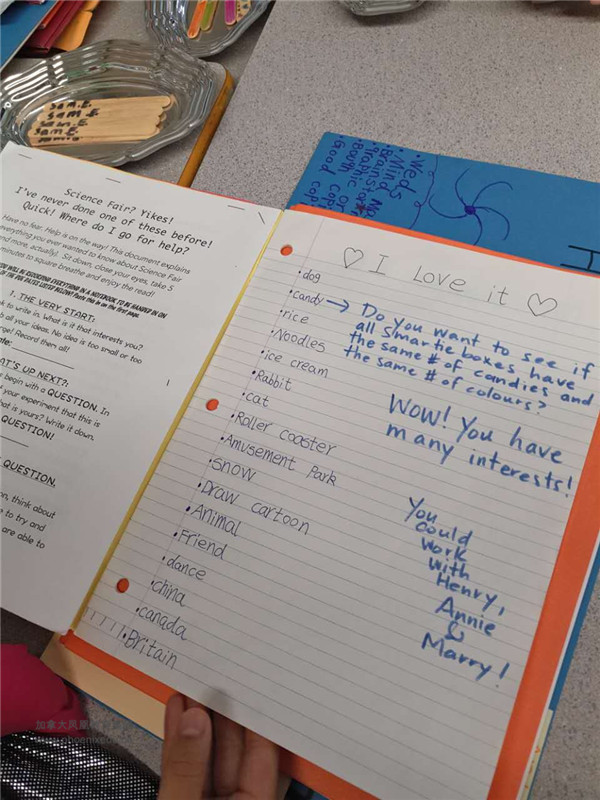 Sam.E.
Sam E
Sam E
Sam E
Weds
Mind
Good copi
Science Fair? Yikes!
I've never done one of these before!
Quick! Where do I go for help?
Have no fear. Help is on the way! This document explains
everything you ever wanted to know about Science Fair
(and more, actually). Sit down, close your eyes, take 5
minutes to square breathe and enjoy the read!
1. THE VERY START:
to write in. What is it that interests you?
all your ideas. No idea is too small or too
Record then all!
WHAT'S UP NEXT?:
begin with a QUESTION. In
of your experiment that this is
What is yours? Write it down.
QUESTION!
QUESTION.
on, think about
to try and
are able to
♡ I Love it ♡
•dog
•candy → Do you want to see if
all Smartie boxes have
the same # of candies and
the same # of colours?
•rice
•Noodles
•ice cream
•Rabbit
•cat
•Roller coaster
•Amusement Park
•snow
•Draw cartoon
•Animal
•Friend
•dance
•china
•canada
•Britain
WOW! You have
many interests!
You
could
work
with
Henry,
Annie
&
Marry!
加拿大凤凰